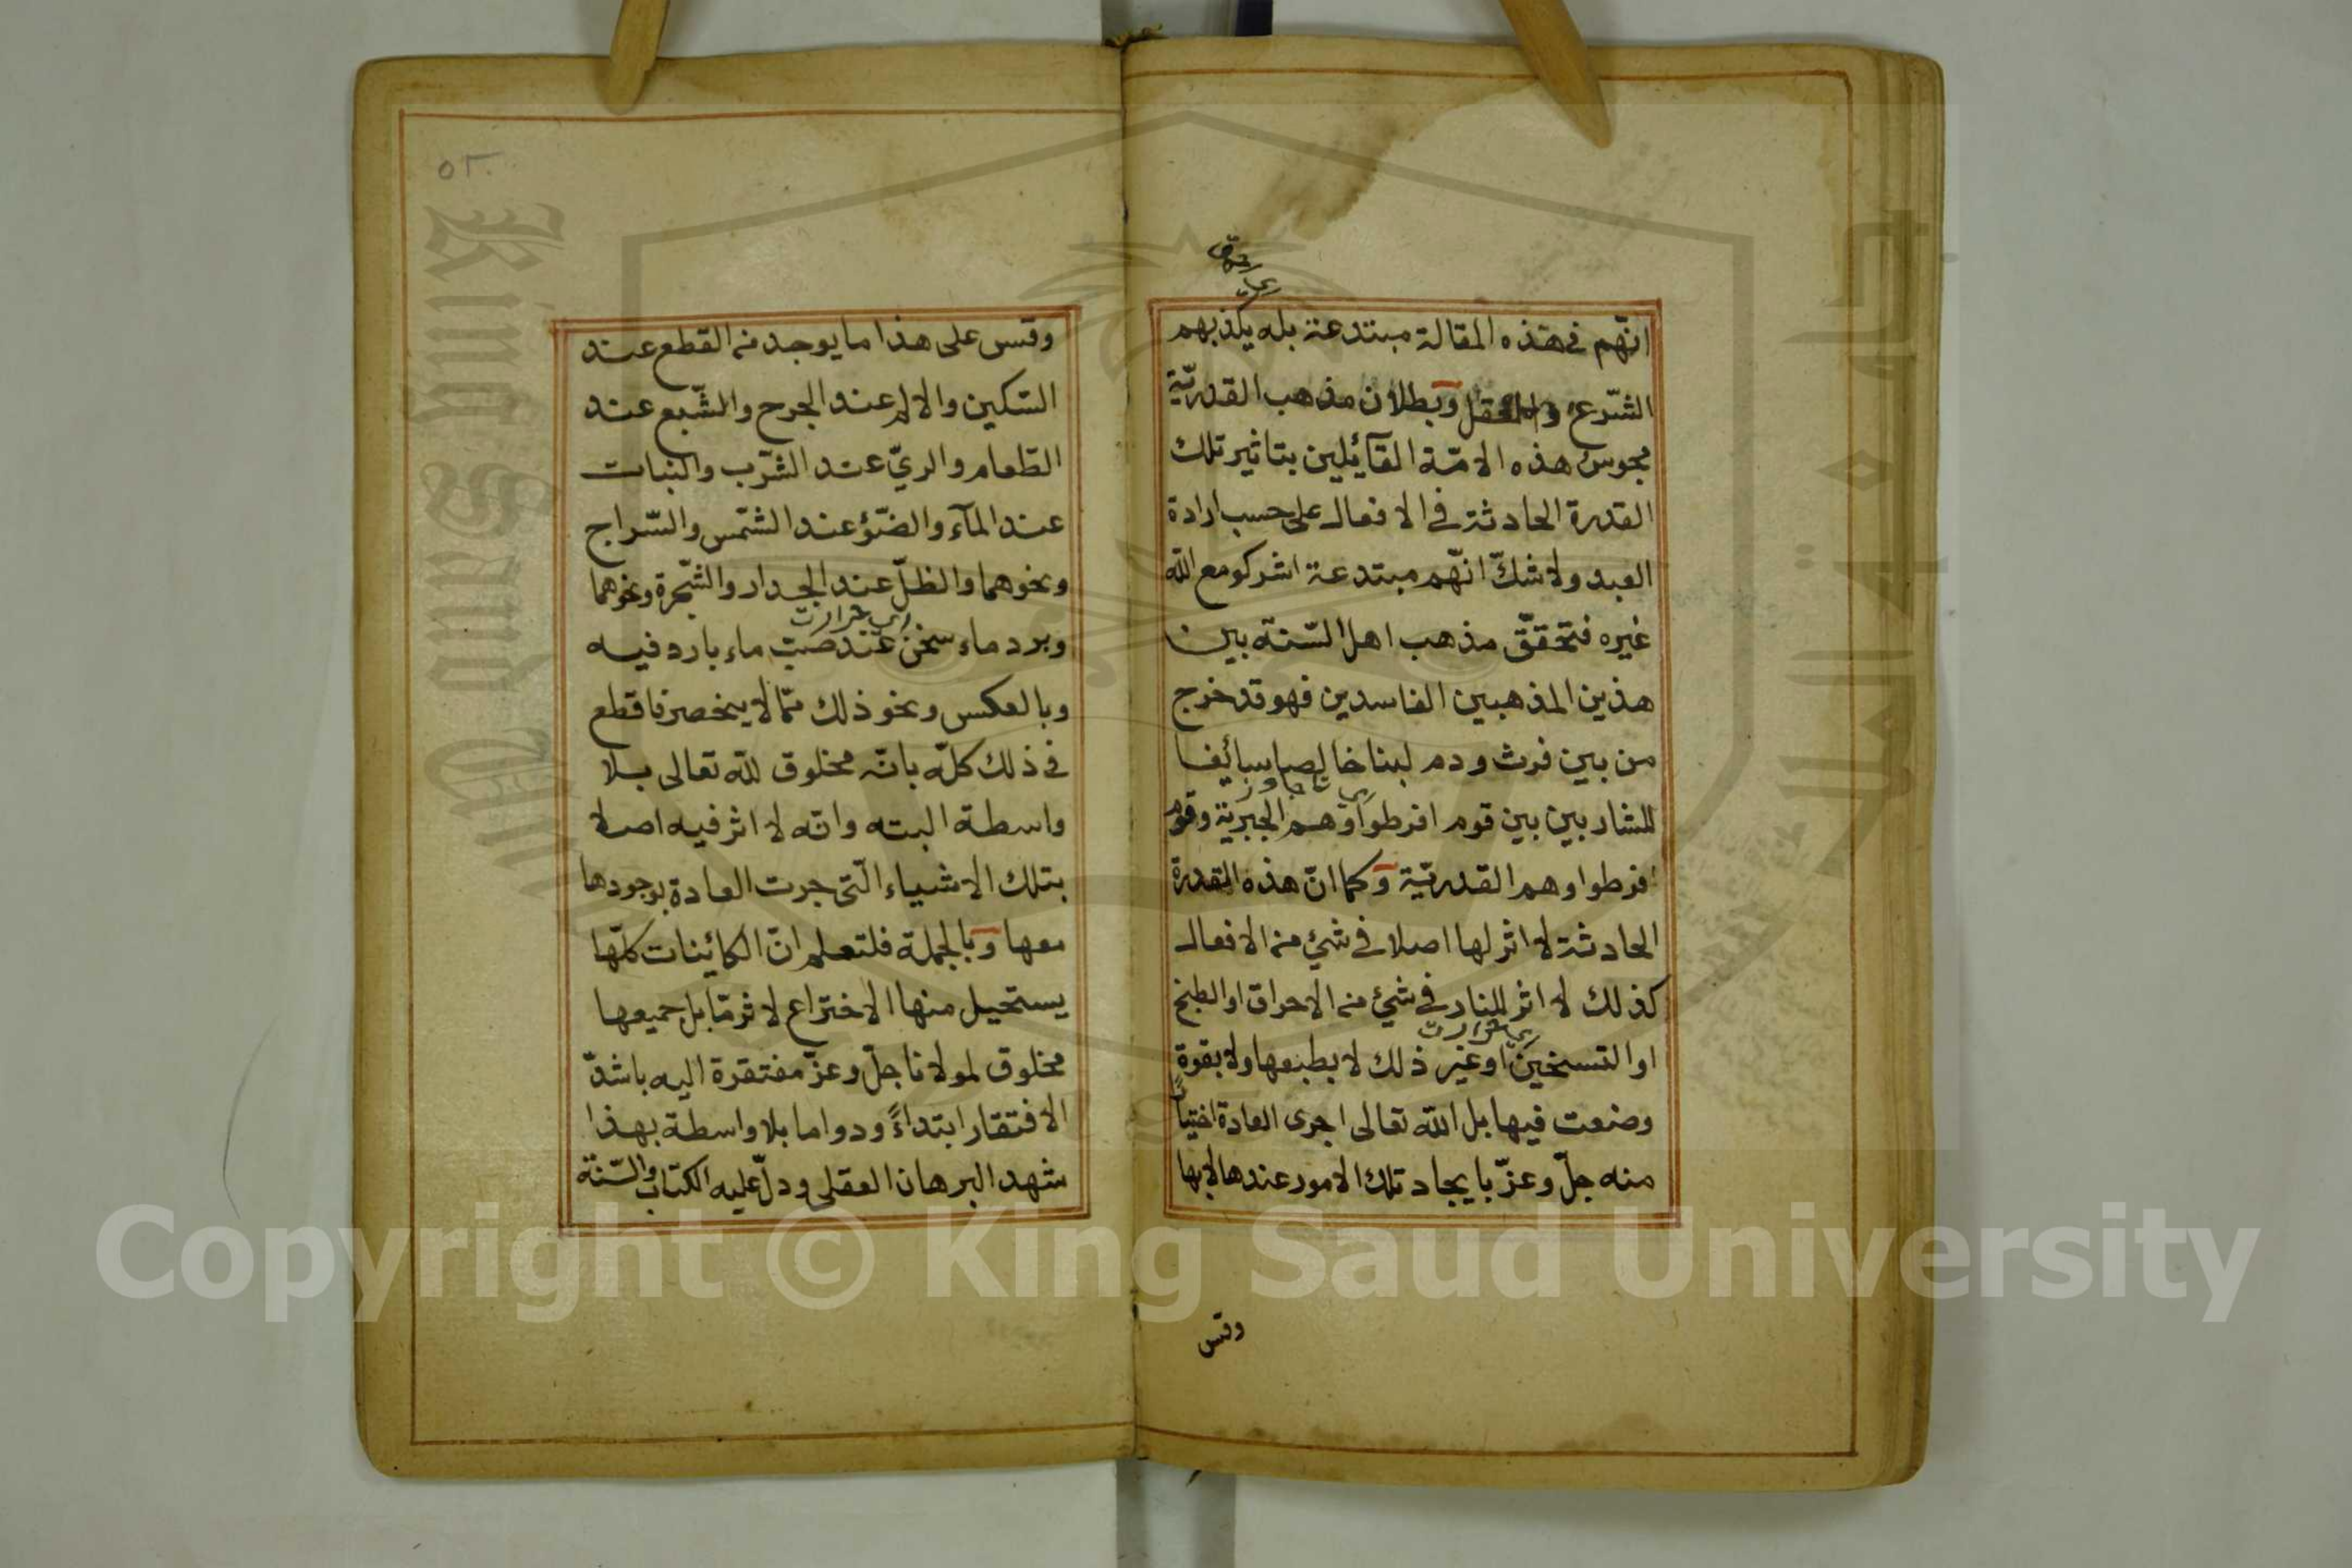 انّهم في هذه المقالة مبتدعة بله يكذبهم
الشّرع والعقل وبطلان مذهب القدريّة
مجوس هذه الامّة القآئلين بتاثير تلك
القدرة الحادثة في الافعال على حسب ارادة
العبد ولا شكّ انّهم مبتدعة اشركو مع اللّه
غيره فتحقّق مذهب اهل السّنّة بين
هذين المذهبين الفاسدين فهو قد خرج
من بين فرث ودم لبنا خالصا سائغا
للشاربين بين قوم افرطوا وهم الجبرية وقوم
افرطوا وهم القدريّة وكما انّ هذه القدرة
الحادثة لا اثر لها اصلا في شيء من الافعال
كذلك لا اثر للنار في شيء من الاحراق او الطبخ
اى حرارت
او التسخين او غير ذلك لا بطبعها ولا بقوة
وضعت فيها بل اللّه تعالى اجرى العادة اختيارًا
منه جلّ وعزّ بايجاد تلك الامور عندها لا بها
وقس
٥٢
وقس على هذا ما يوجد من القطع عند
السّكين والالم عند الجرح والشّبع عند
الطّعام والريّ عند الشّرب والنبات
عند المآء والضّوء عند الشّمس والسّراج
ونحوهما والظلّ عند الجدار والشّجرة ونحوهما
اى حرارت
وبرد ماء سخن عند صبّ ماء بارد فيه
وبالعكس ونحو ذلك ممّا لا ينحصر فاقطع
في ذلك كلّه بانّه مخلوق للّه تعالى بلا
واسطة البته وانّه لا اثر فيه اصلا
بتلك الاشياء الّتى جرت العادة بوجودها
معها وبالجملة فلتعلم انّ الكائنات كلّها
يستحيل منها الاختراع لاثر مّا بل جميعها
مخلوق لمولانا جلّ وعزّ مفتقرة اليه باشدّ
الافتقار ابتداءً ودواما بلا واسطة بهذا
شهد البرهان العقلى ودلّ عليه الكتاب والسّنّة
Copyright © King Saud University